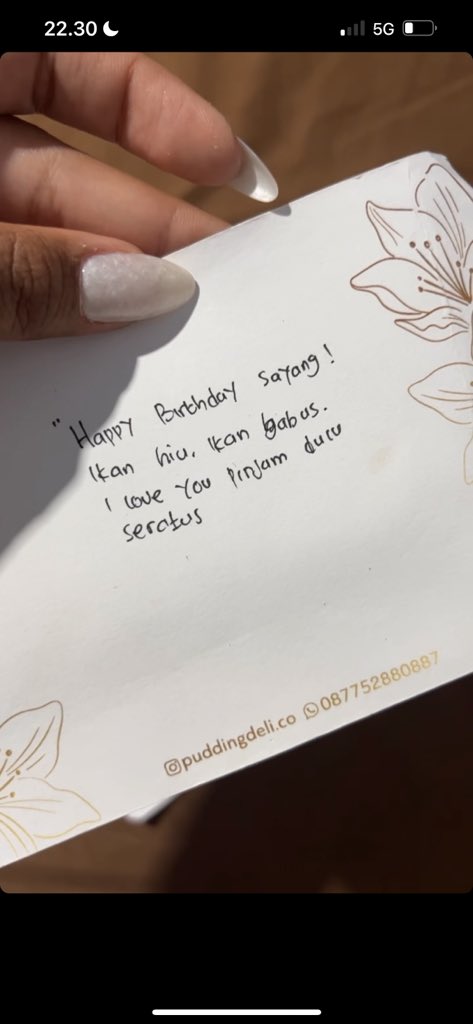 22.30
5G
" Happy Birthday sayang!
Ikan hiu. Ikan gabus.
I love you pinjam dulu
seratus
puddingdeli.co 087752880887